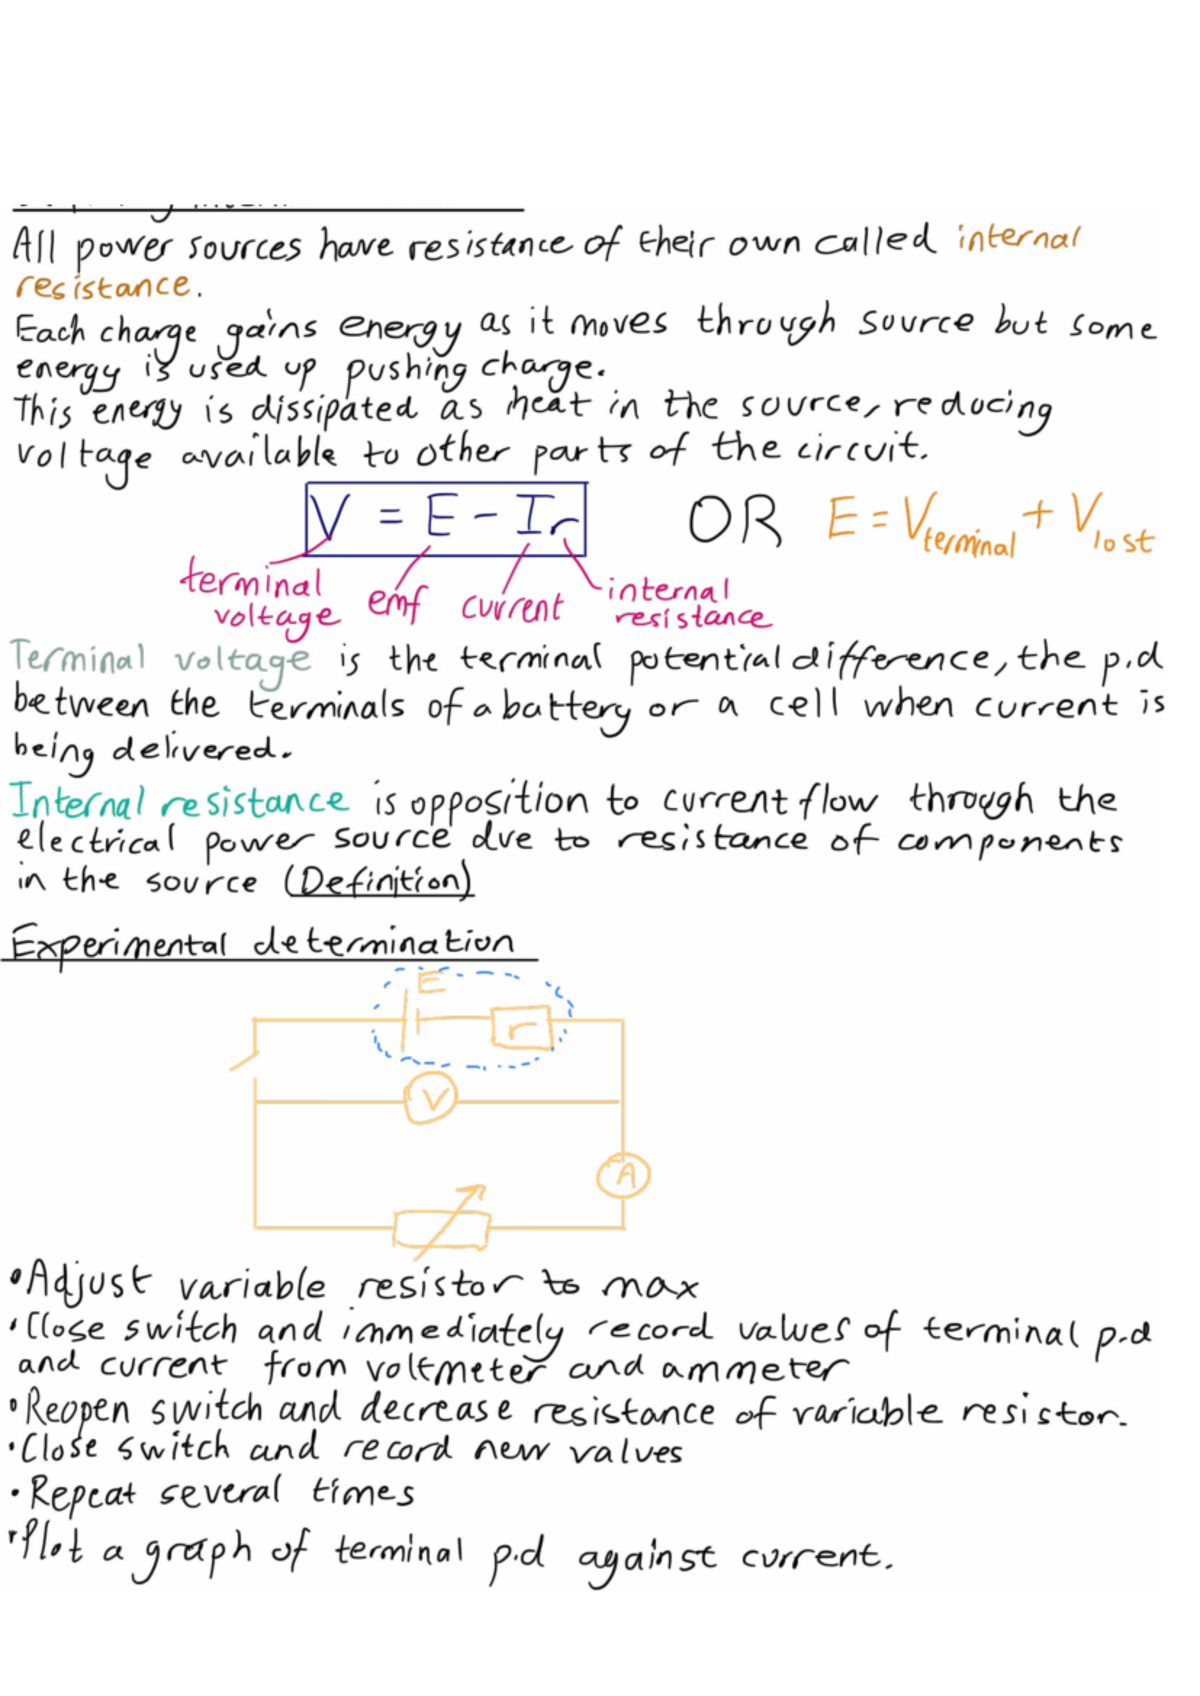 All power sources have resistance of their own called internal
resistance.
Each charge gains energy as it moves through source but some
energy is used up pushing charge.
This energy is dissipated as heat in the source, reducing
voltage available to other parts of the circuit.
V = E - Ir OR E = Vterminal + Vlost
terminal voltage emf current internal resistance
Terminal voltage is the terminal potential difference, the p.d
between the terminals of a battery or a cell when current is
being delivered.
Internal resistance is opposition to current flow through the
electrical power source due to resistance of components
in the source (Definition)
Experimental determination
E
r
V
A
•Adjust variable resistor to max
•Close switch and immediately record values of terminal p.d
and current from voltmeter and ammeter
•Reopen switch and decrease resistance of variable resistor.
•Close switch and record new values
•Repeat several times
•Plot a graph of terminal p.d against current.